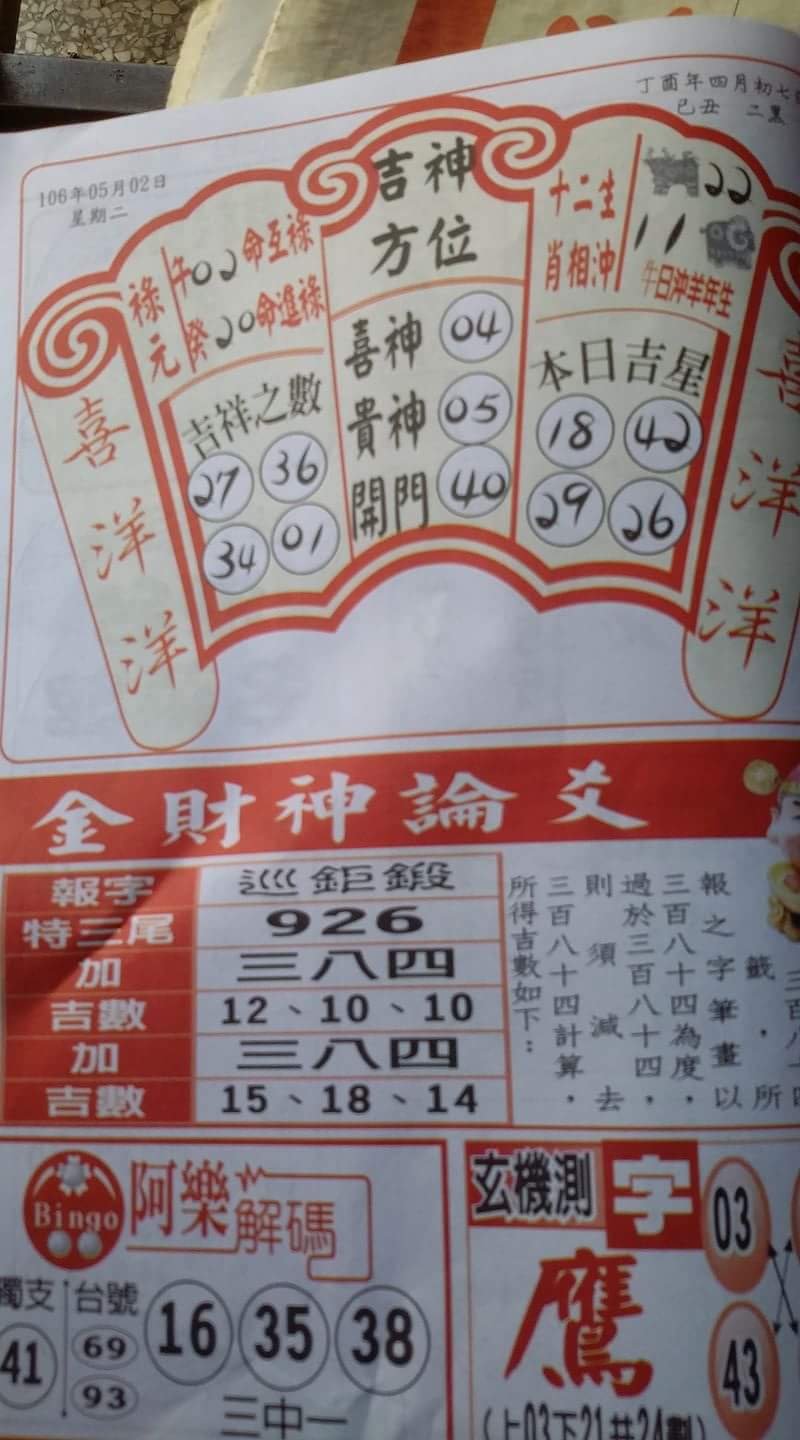 丁酉年四月初七
己丑 二黑
106年05月02日
星期二
吉神
方位
喜神 04
貴神 05
開門 40
祿元
午02命互祿
癸20命進祿
吉祥之數
27 36
34 01
十二生
肖相沖
22
11
牛日沖羊年生
本日吉星
18 42
29 26
喜洋洋
喜洋洋
金財神論爻
報字 巡鉅鍛
特三尾 926
加 三八四
吉數 12、10、10
加 三八四
吉數 15、18、14
報之字筆畫以
三百八十四為度,
過於三百八十四,
則須減去
三百八十四計算,
所得吉數如下:
Bingo
阿樂解碼
獨支 41
台號 69 93
16 35 38
三中一
玄機測字
鷹
03
43
(上03下21共24劃)